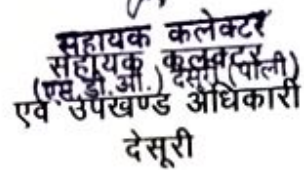 सहायक कलेक्टर
सहायक कलेक्टर
(एस.डी.ओ.) देसूरी (पाली)
एवं उपखण्ड अधिकारी
देसूरी